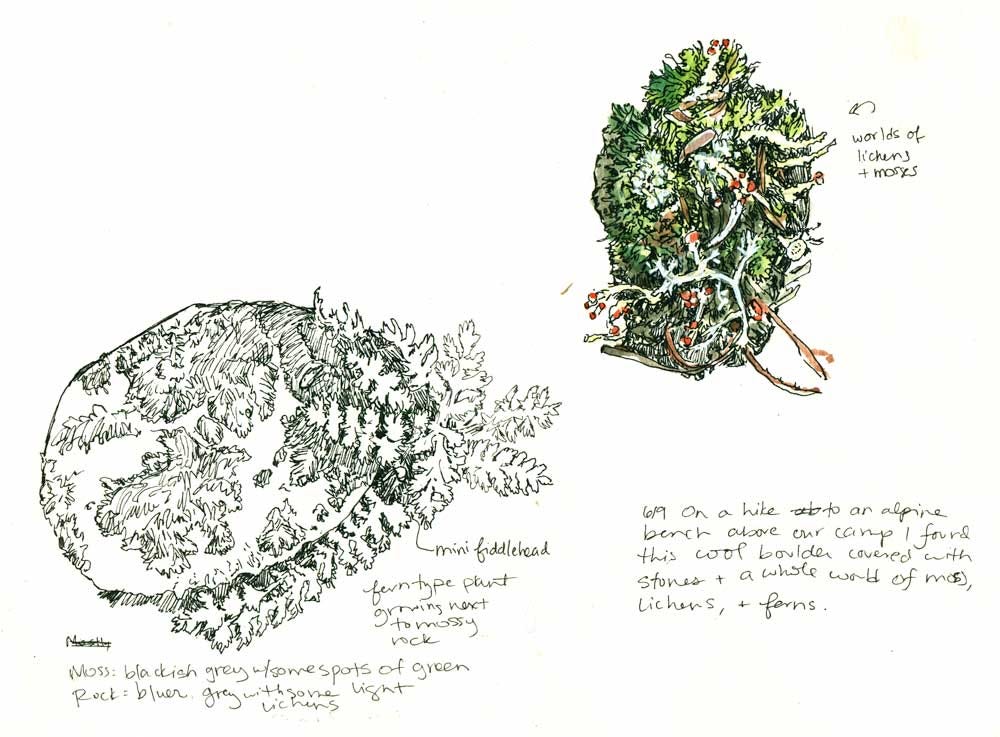 worlds of
lichens
+ mosses
6/9 On a hike to an alpine
bench above our camp I found
this cool boulder covered with
stones + a whole world of moss,
Lichens, + ferns.
mini fiddlehead
fern type plant
growing next
to mossy
rock
Mostly
Moss: blackish grey w/some spots of green
Rock: bluer grey with some light
lichens